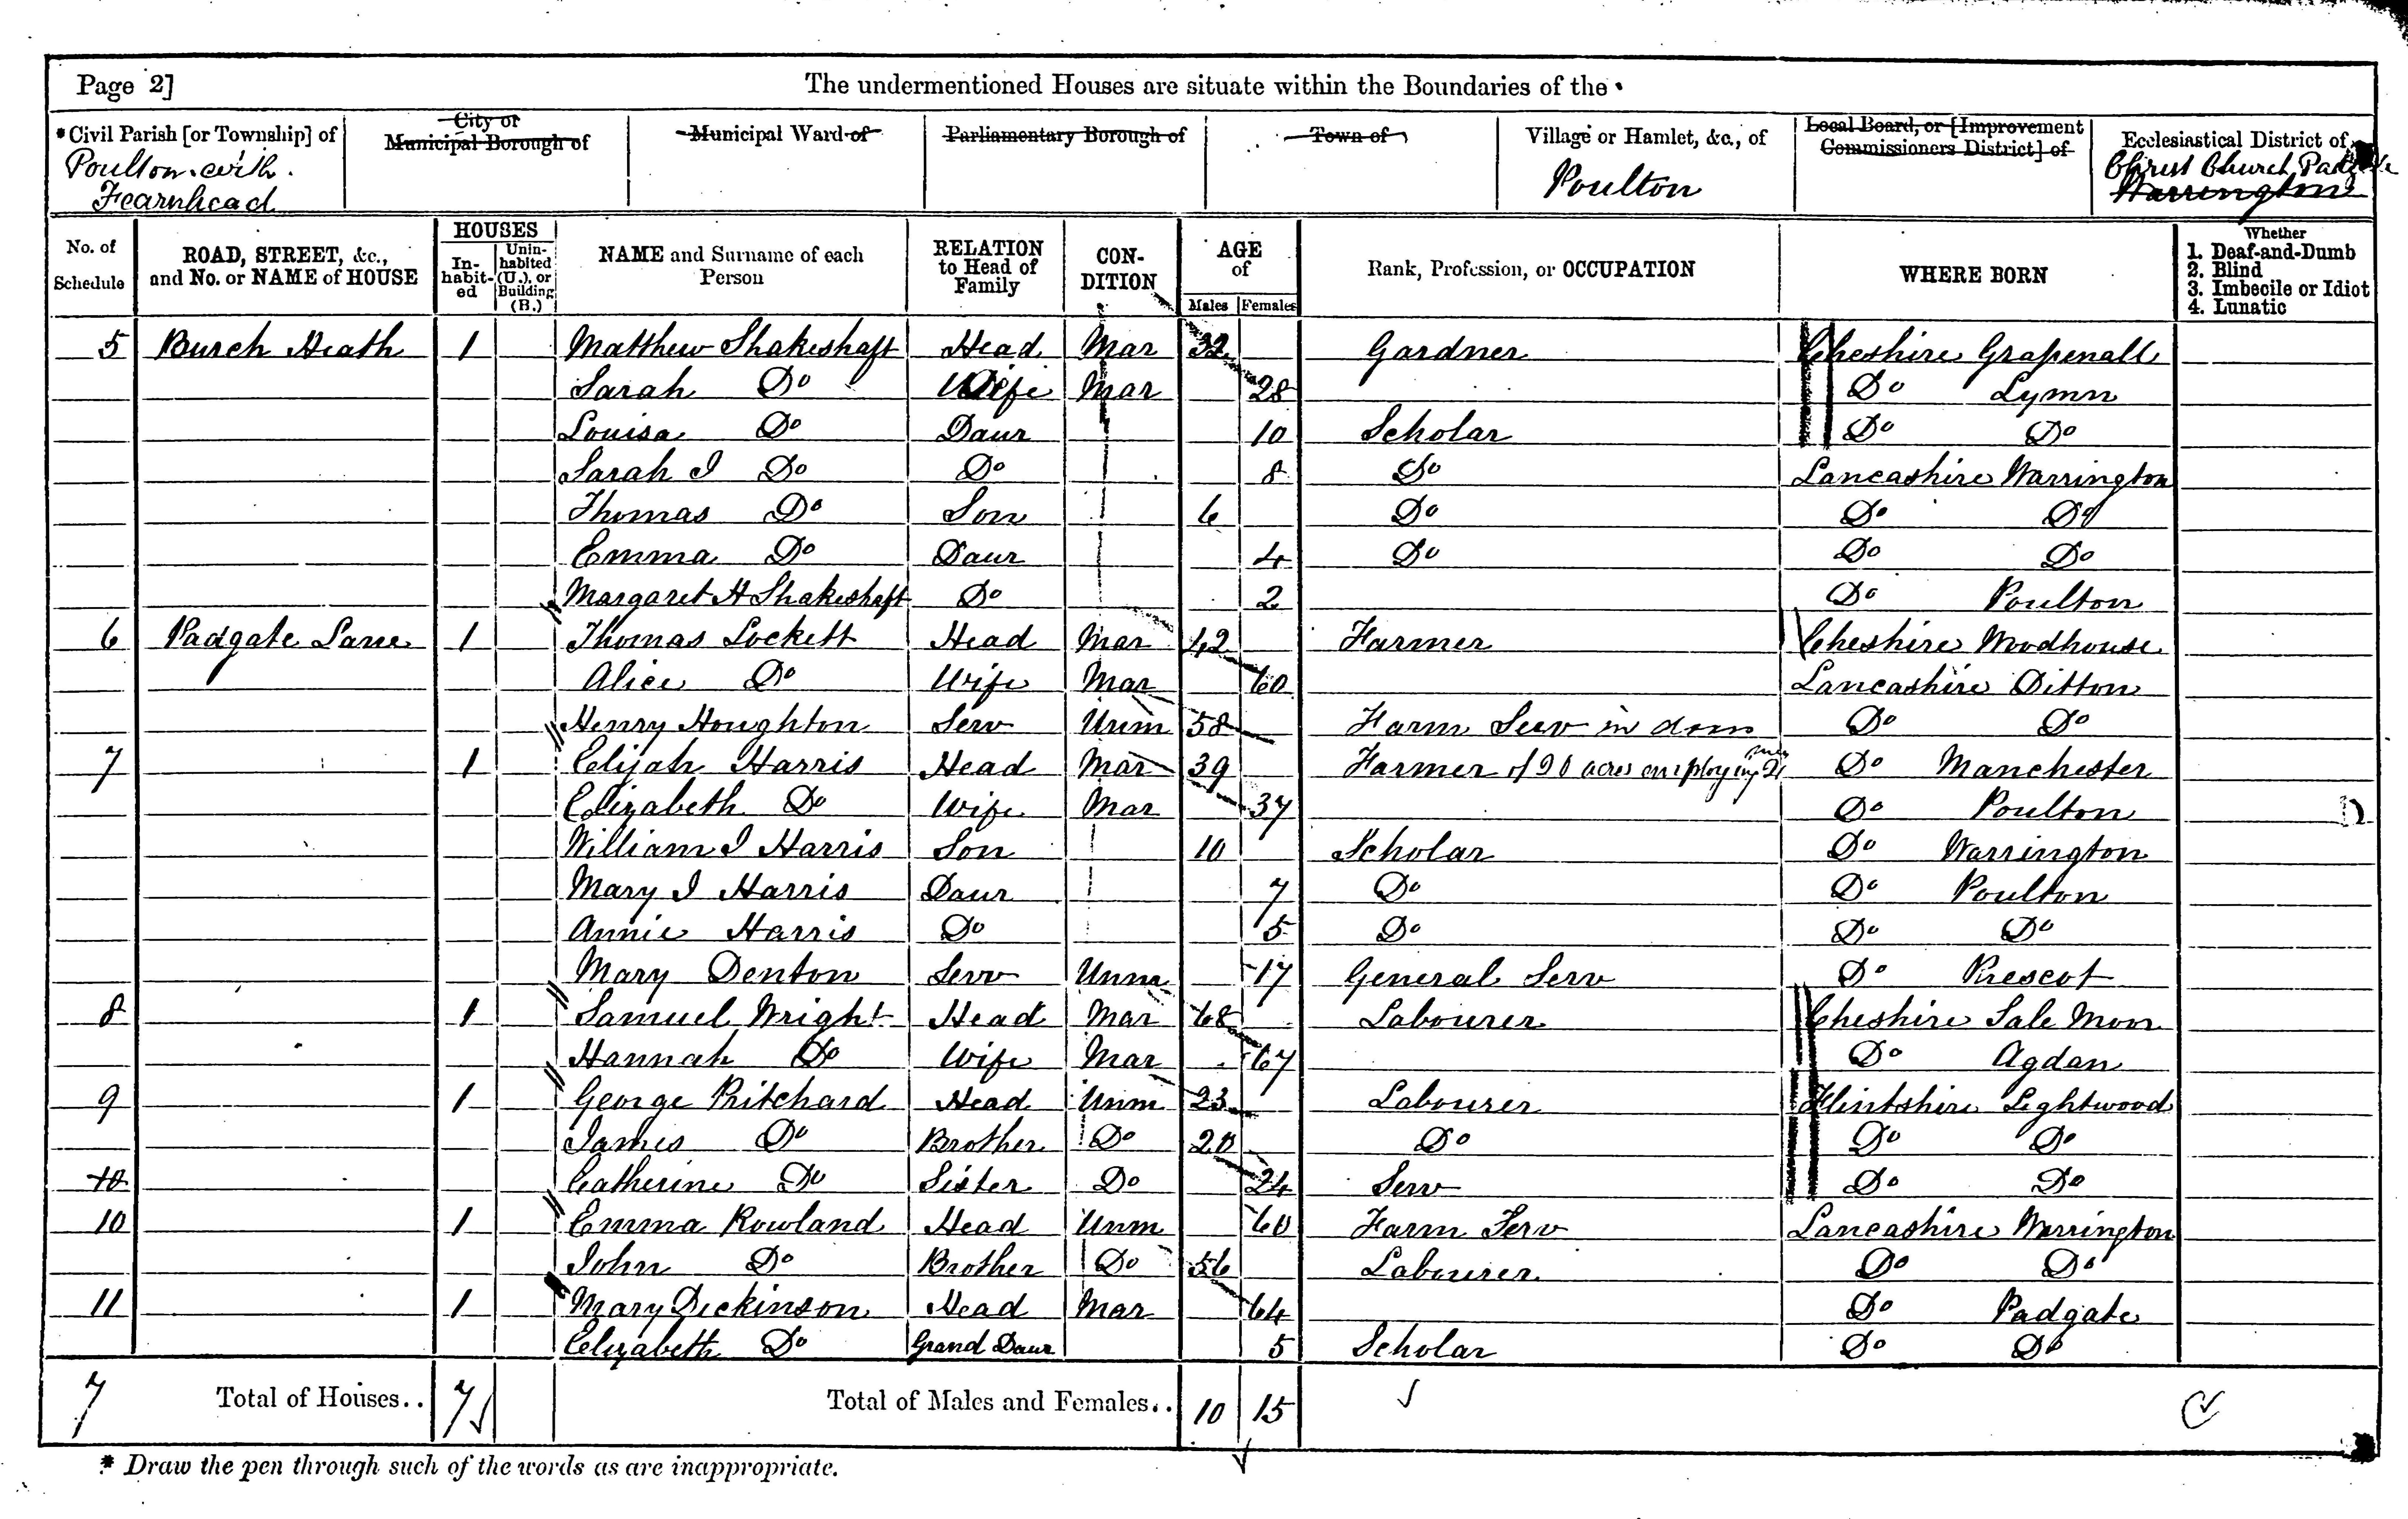 Page 2] The undermentioned Houses are situate within the Boundaries of the
*Civil Parish [or Township] of City or Municipal Borough of Municipal Ward of Parliamentary Borough of Town of Village or Hamlet, &c., of Local Board, or [Improvement Commissioners District] of Ecclesiastical District of
Poulton with Fearnhead Poulton Christ Church Padgate Warrington
No. of Schedule ROAD, STREET, &c., and No. or NAME of HOUSE HOUSES Inhabited Uninhabited (U.), or Building (B.) NAME and Surname of each Person RELATION to Head of Family CONDITION AGE of Males Females Rank, Profession, or OCCUPATION WHERE BORN Whether 1. Deaf-and-Dumb 2. Blind 3. Imbecile or Idiot 4. Lunatic
5 Burch Heath 1 Matthew Shakeshaft Head Mar 32 Gardner Cheshire Grapenall
Sarah Do Wife Mar 28 Do Lymn
Louisa Do Daur 10 Scholar Do Do
Sarah J Do Do 8 Do Lancashire Warrington
Thomas Do Son 6 Do Do Do
Emma Do Daur 4 Do Do Do
Margaret H Shakeshaft Do 2 Do Poulton
6 Padgate Lane 1 Thomas Lockett Head Mar 42 Farmer Cheshire Woodhouse
Alice Do Wife Mar 60 Lancashire Ditton
Henry Houghton Serv Unm 58 Farm Serv in dom Do Do
7 1 Elijah Harris Head Mar 39 Farmer of 90 acres employing 2 men Do Manchester
Elizabeth Do Wife Mar 37 Do Poulton
William J Harris Son 10 Scholar Do Warrington
Mary J Harris Daur 7 Do Do Poulton
Annie Harris Do 5 Do Do Do
Mary Denton Serv Unm 17 General Serv Do Prescot
8 1 Samuel Wright Head Mar 68 Labourer Cheshire Sale Moor
Hannah Do Wife Mar 67 Do Agdan
9 1 George Pritchard Head Unm 23 Labourer Flintshire Lightwood
James Do Brother Do 20 Do Do Do
10 Catherine Do Sister Do 24 Serv Do Do
10 1 Emma Rowland Head Unm 60 Farm Serv Lancashire Warrington
John Do Brother Do 56 Labourer Do Do
11 1 Mary Dickinson Head Mar 64 Do Padgate
Elizabeth Do Grand Daur 5 Scholar Do Do
7 Total of Houses.. 7 Total of Males and Females.. 10 15
* Draw the pen through such of the words as are inappropriate.